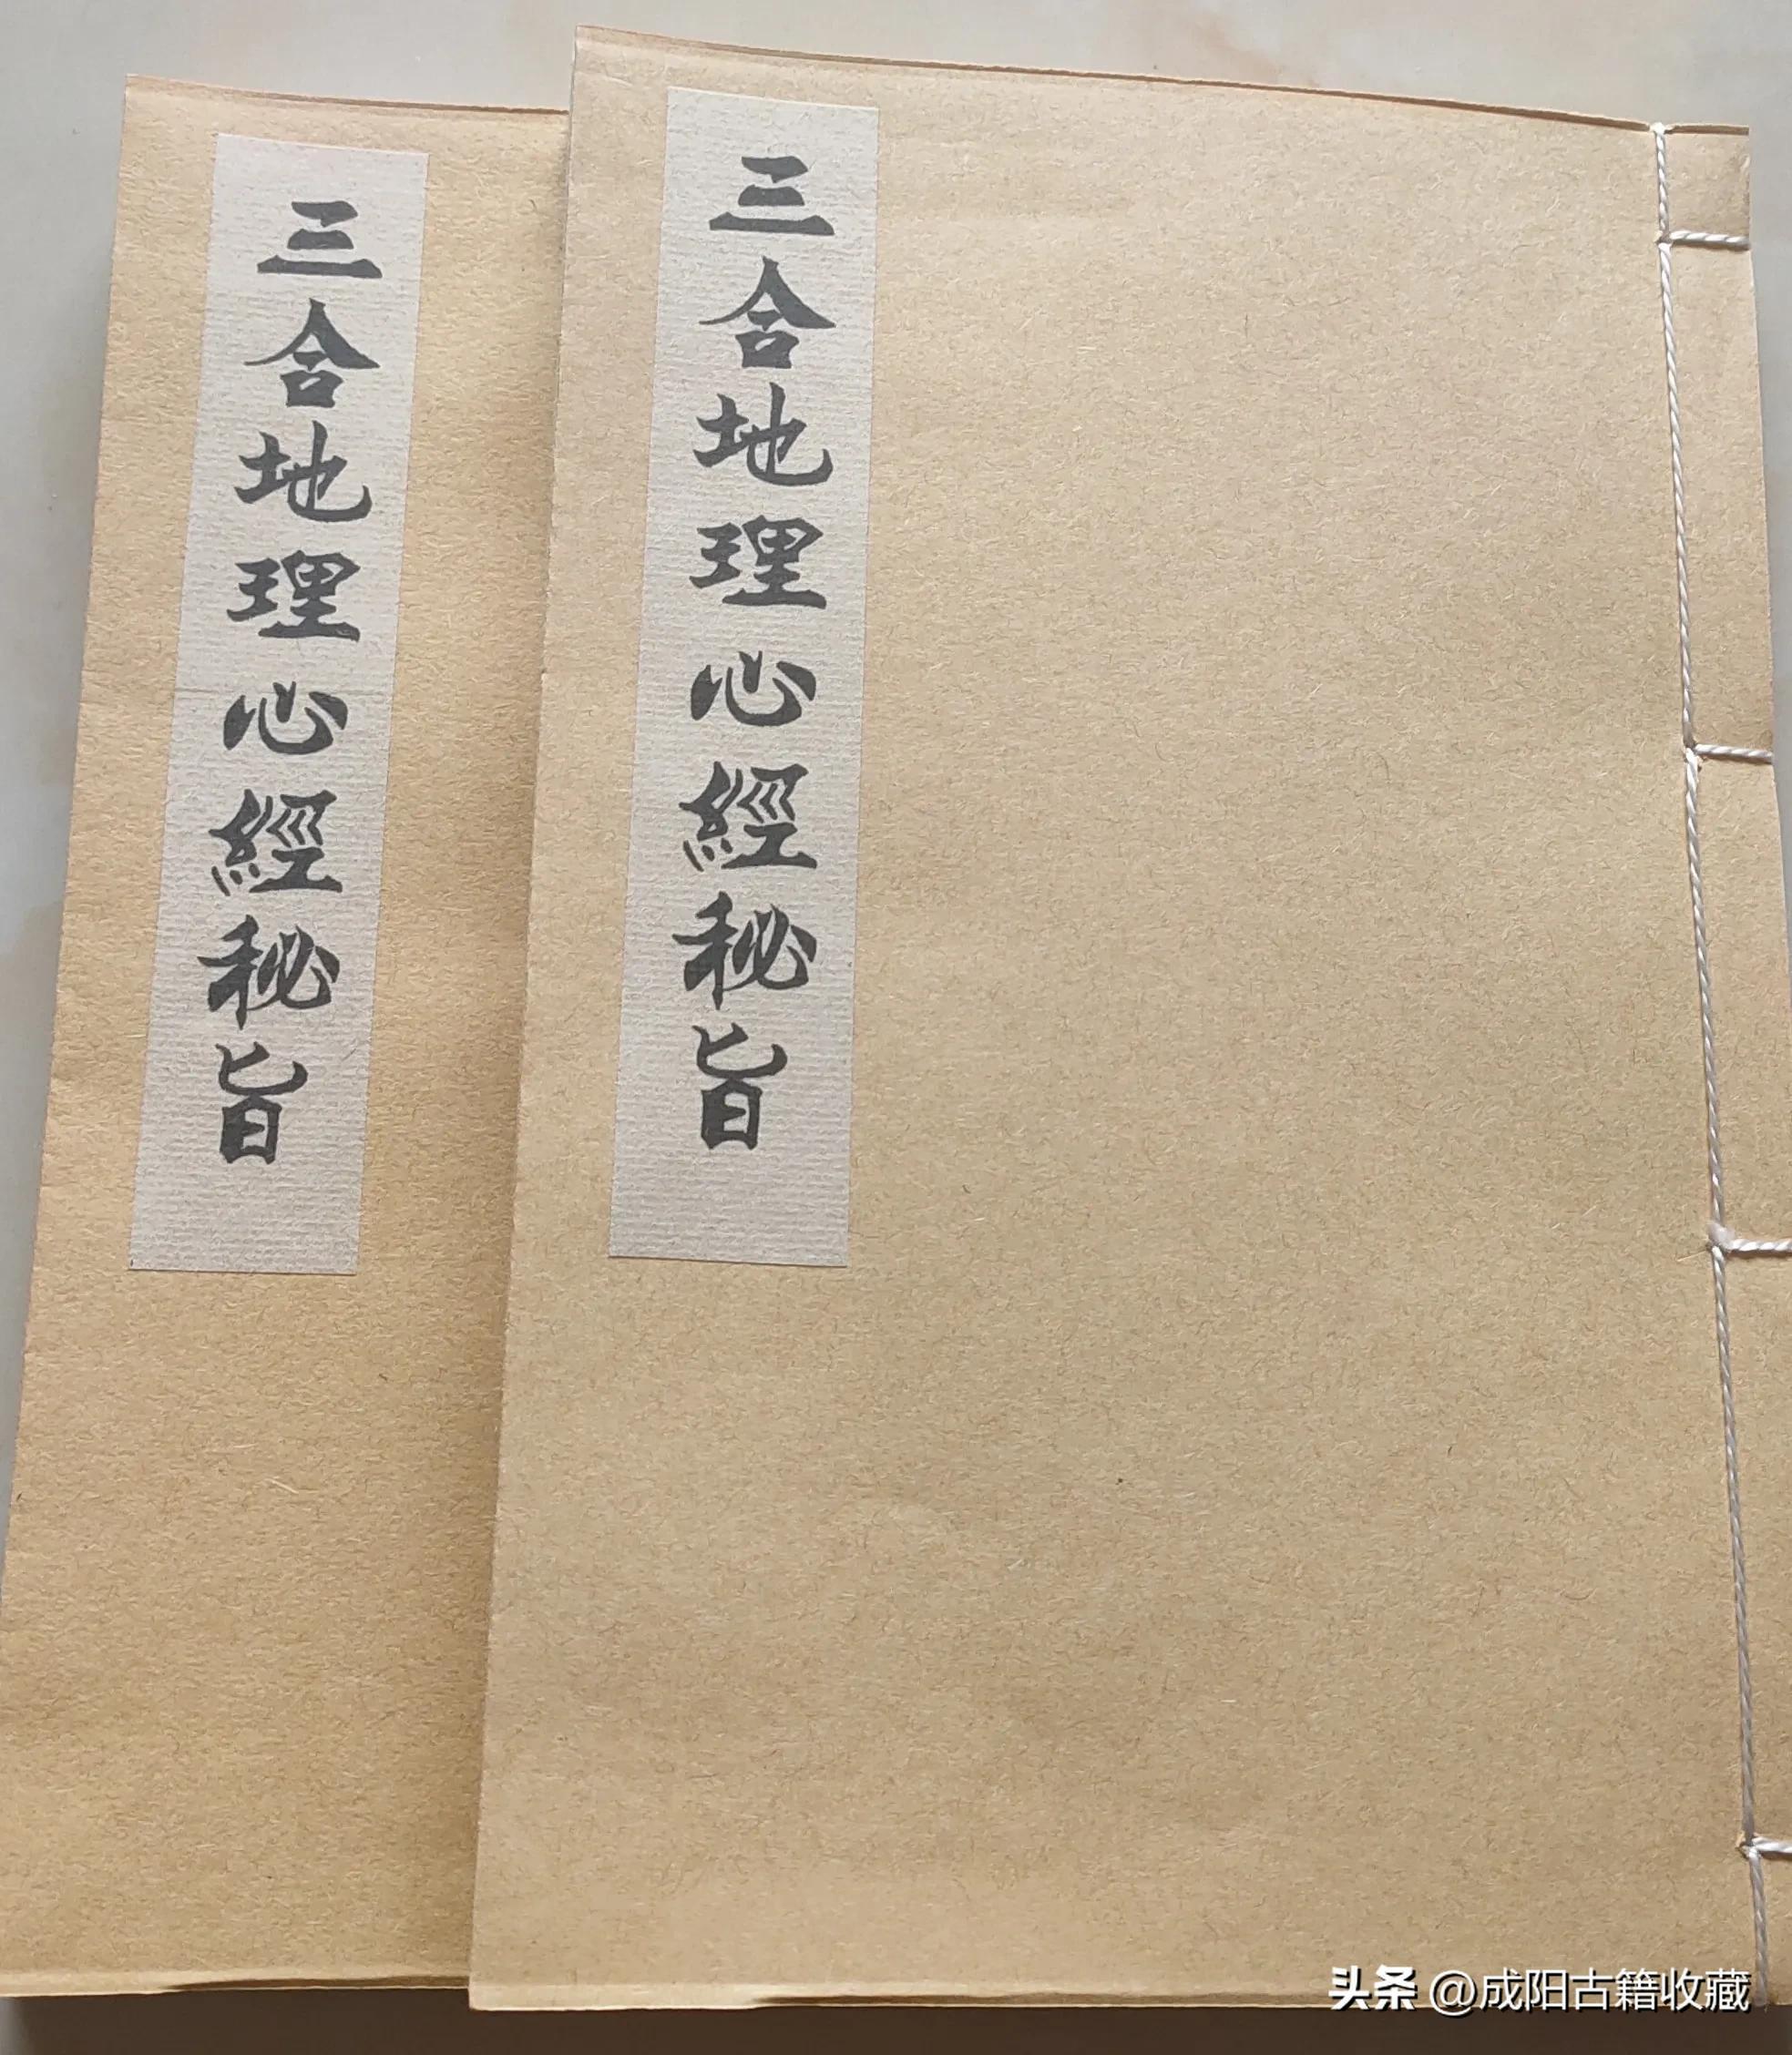 三合地理心經秘旨
三合地理心經秘旨
头条 @成阳古籍收藏